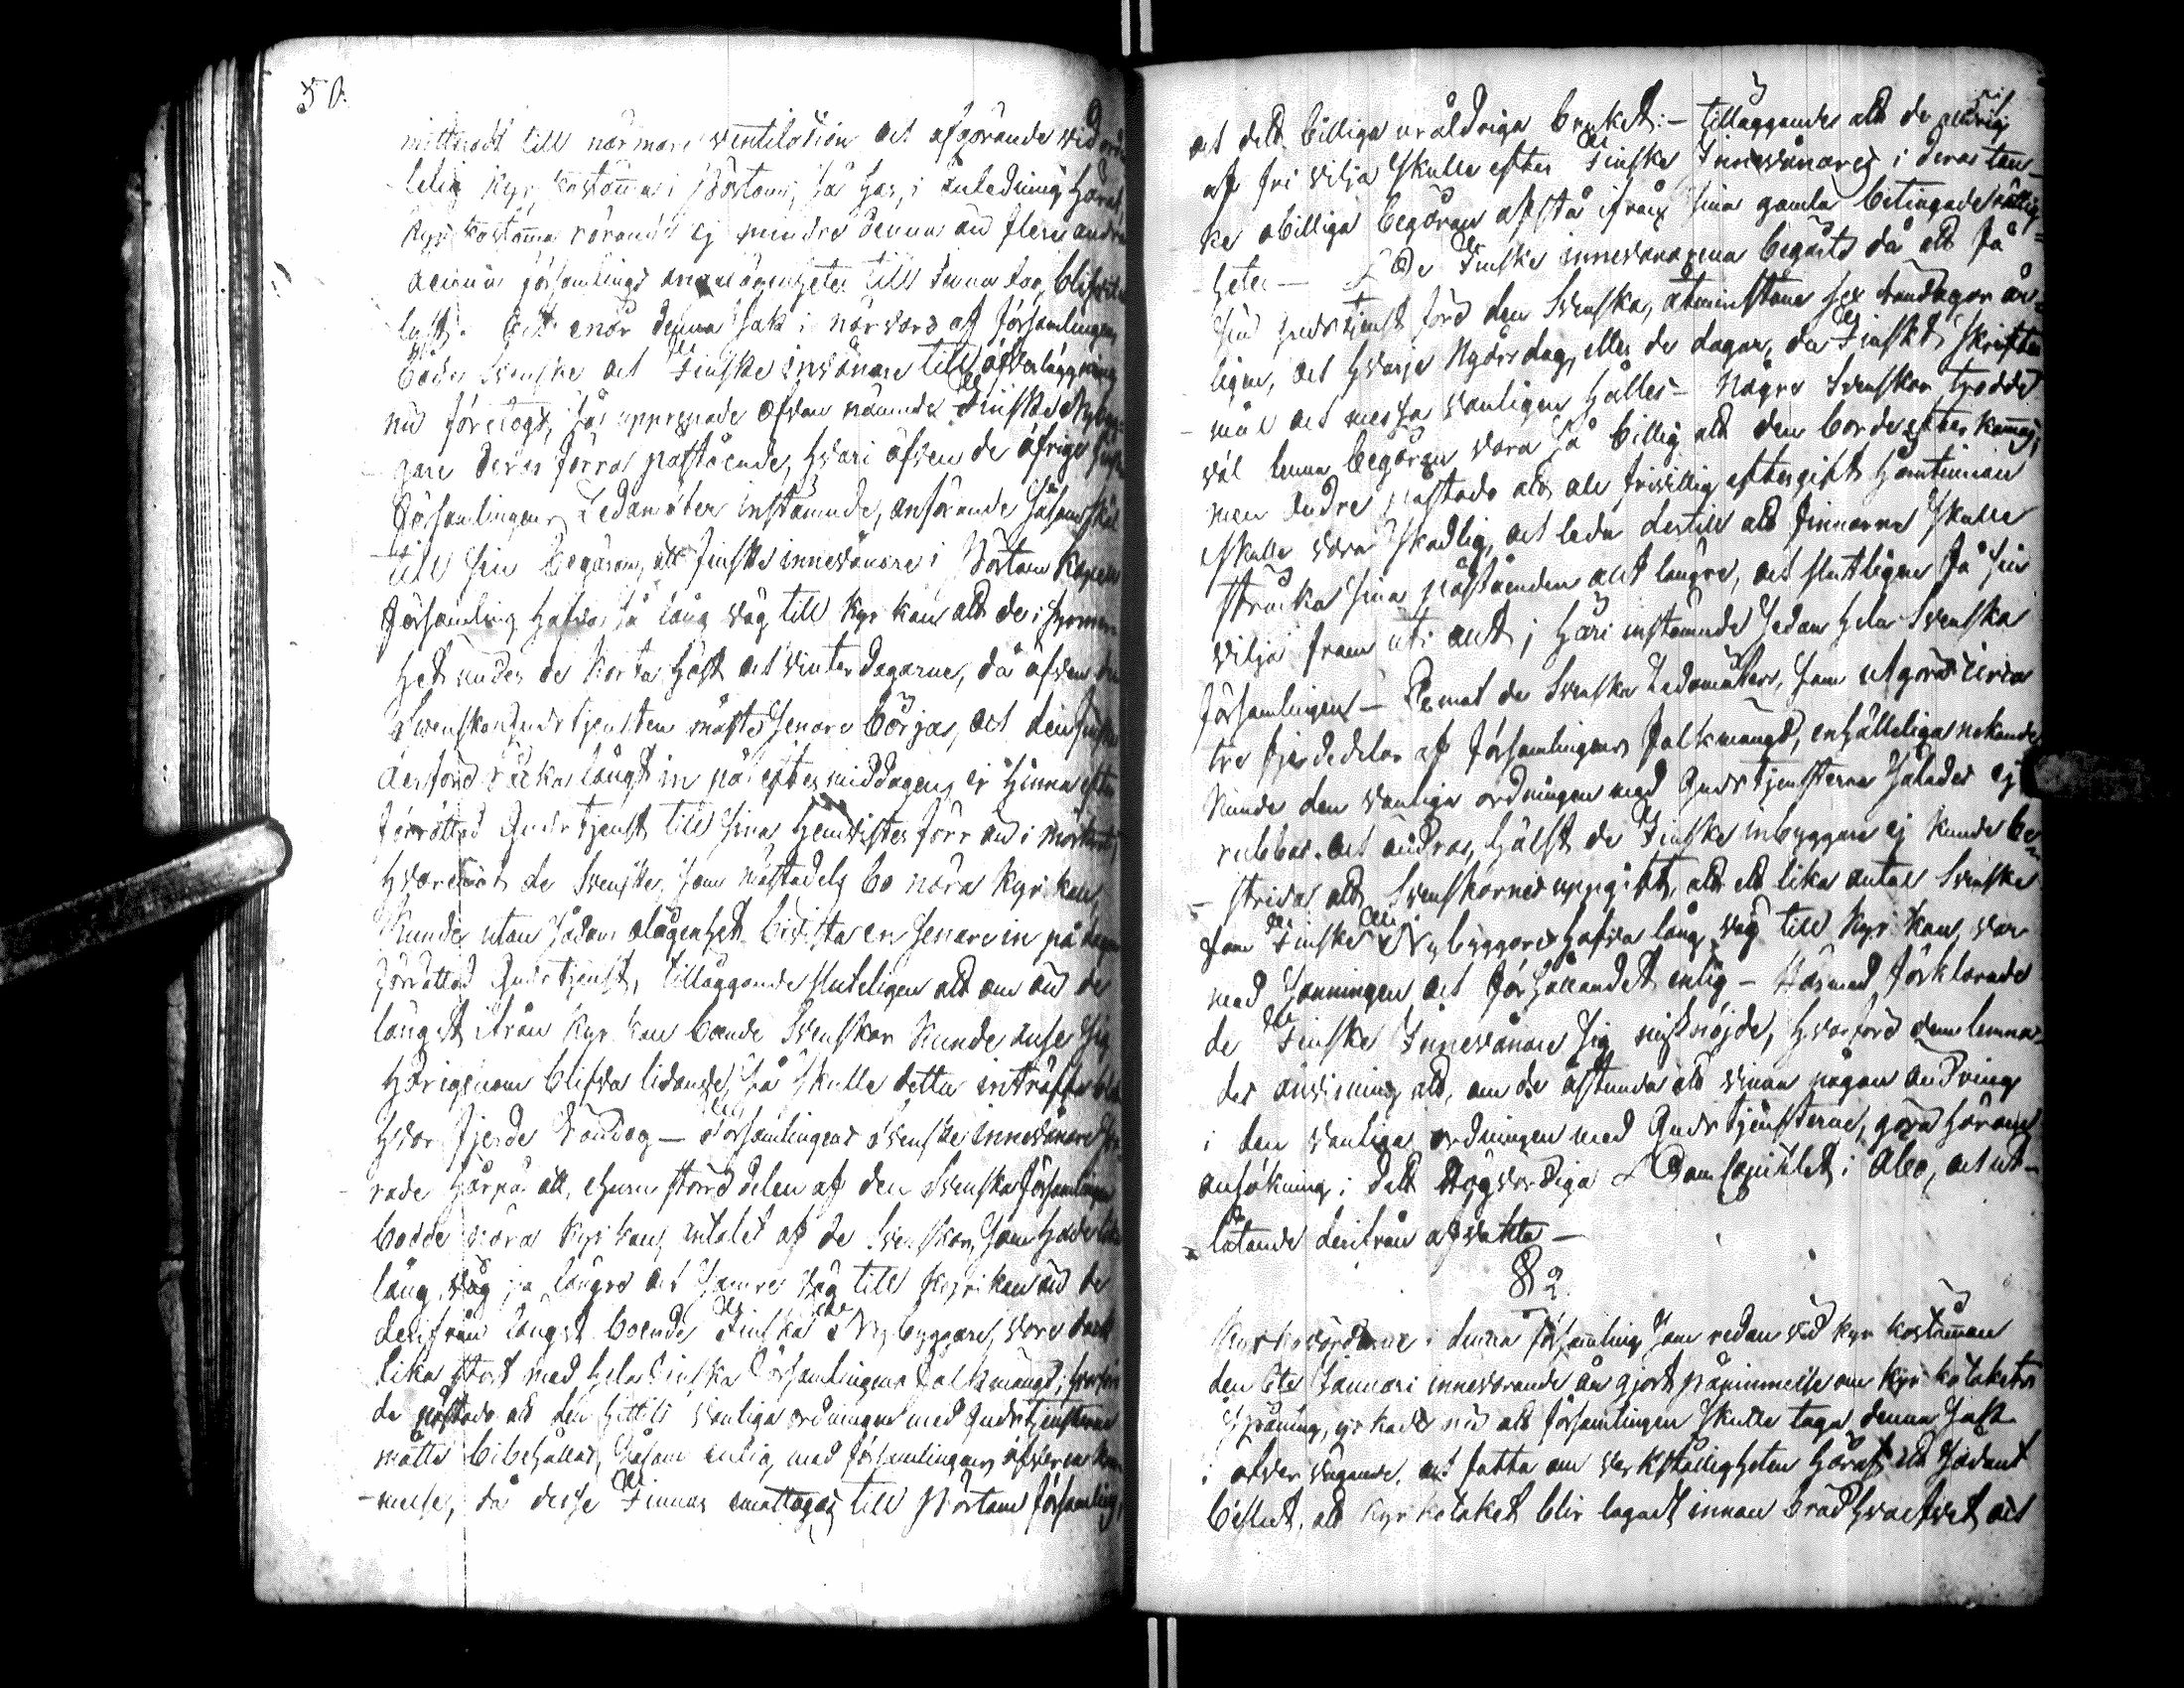 50.
mittradt till närmare ventilation och afgörande wid
lelig Kyrkostämma i Nörtom; så har, i anledning häraf,
Kyrkostämma rörande ej mindre denna än flere andra
denna församlings angelägenheter till denna dag blifvit
lyst. Och enär denna sak i närvaro af församlingens
både Svenske och Finske invånare till öfverläggning
nu företogs, så upprepade ofvan nämnde Finske Nybyg-
gare deras förra påstående, hvari äfven de öfrige
församlingens Ledamöter instämde, anförande såsom skäl
till sin begäran, att Finske innevånare i Nörtom Kapell
församling hafva så lång väg till kyrkan att de i
het under de korta höst och vinter dagarne, då äfven den
Svenska Gudstjensten måste senare börjas, och den
derföre räcka långt in på eftermiddagen, ej hinna efter
förrättad Gudstjenst till sina hemvister förr än i mörkret,
hvaremot de Svenske, som mästadels bo nära kyrkan,
kunde utan sådan olägenhet bivista en senare in på dagen
förrättad Gudstjenst, tilläggande sluteligen att om än de
längst ifrån kyrkan boende Svenskar kunde anse sig
härigenom blifva lidande, så skulle detta inträffa
hvar fjerde Söndag — Församlingens Svenske innevånare
rade härpå att, ehuru större delen af den Svenska församlingen
bodde nära kyrkan, antalet af de Svenskar, som hade lika
lång väg, ja längre och sämre väg till kyrkan än de
derifrån längst boende Finska Nybyggare, vore
lika stort med hela Finska församlingens folkmängd; hvarföre
de påstodo att den hittils vanliga ordningen med Gudstjensterna
måtte bibehållas, såsom enlig med församlingens öfverens
-melse, då desse Finnar emottogos till Nörtom församling,
och detta billiga uråldriga bruket: — tilläggandes att de aldrig
af fri vilja skulle efter Finske Innevånares i deras tan-
ke obilliga begäran afstå ifrån sina gamla betingade rättig-
heter — De Finske innevånarena begärte då att få
sin Gudstjenst förd den Svenska, åtminstone sex söndagar år-
ligen, och hvarje Nyårsdag, eller de dagar, då Finskt skrifter
mål och messa vanligen hålles — Någre Svenskar trodde
väl denna begäran vara så billig att den borde efterkommas,
men andre påstodo att all frivillig eftergift härutinnan
skulle vara skadlig, och leda dertill att Finnarne skulle
sträcka sina påståenden allt längre, och slutligen få sin
vilja fram uti allt; häri instämde sedan hela Svenska
församlingen — Emot de Svenska Ledamöters, som utgöra circa
tre fjerdedelar af församlingens folkmängd, enhälleliga nekande
kunde den vanliga ordningen med Gudstjensterna således ej
rubbas och ändras, hälst de Finske inbyggare ej kunde be-
strida att Svenskarnes uppgift, att ett lika antal Svenske
som Finske Nybyggare hafva lång väg till kyrkan, var
med sanningen och förhållandet enlig — Härmed förklarade
de Finske Innevånare sig missnöjde, hvarföre dem lemna-
des anvisning att, om de åstunda att vinna någon ändring
i den vanliga ordningen med Gudstjensterne, göra härom
ansökning i det Högvördiga Domcapitlet i Åbo, och ut-
låtande derifrån afvakta —
§ 2.
Kyrkovärdarne i denna församling som redan vid kyrkostämman
den 6te Januari innevarande år gjort påminnelse om kyrkotakets
spåning, yrkade nu att församlingen skulle taga denna sak
i öfvervägande, och fatta om verkställigheten häraf ett sådant
beslut, att kyrkotaket blir lagadt innan brådhvarfvet och